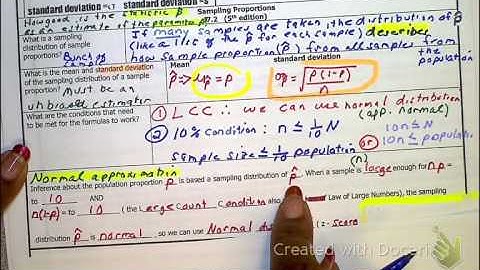 standard deviation = standard deviation =
How good is the statistic p̂ Sampling Proportions
as an estimate of the parameter p? 7.2 (5th edition)
What is a sampling distribution of sample proportions? Bunch of samples
If many samples are taken, the distribution of p̂
(like a list of the p̂ for each sample) describes
how sample proportion (p̂) from all samples from the
population
What is the mean and standard deviation of the sampling distribution of a sample proportion? Must be an
unbiased estimater
Mean
p̂ => μp̂ = p
standard deviation
σp̂ = √p(1-p)/n
What are the conditions that need to be met for the formulas to work?
① LCC ∴ we can use normal distribution
(app. normal)
② 10% Condition: n ≤ 1/10 N or 10n ≤ N
10n ≤ population
sample size ≤ 1/10 population
(n)
Normal approximation
Inference about the population proportion p is based a sampling distribution of p̂. When a sample is large enough for np ≥
to 10 and
n(1-p) = to 10 (the Large Count Condition also Law of Large Numbers), the sampling
distribution p̂ is normal, so we can use Normal (z-score
Created with Doceri